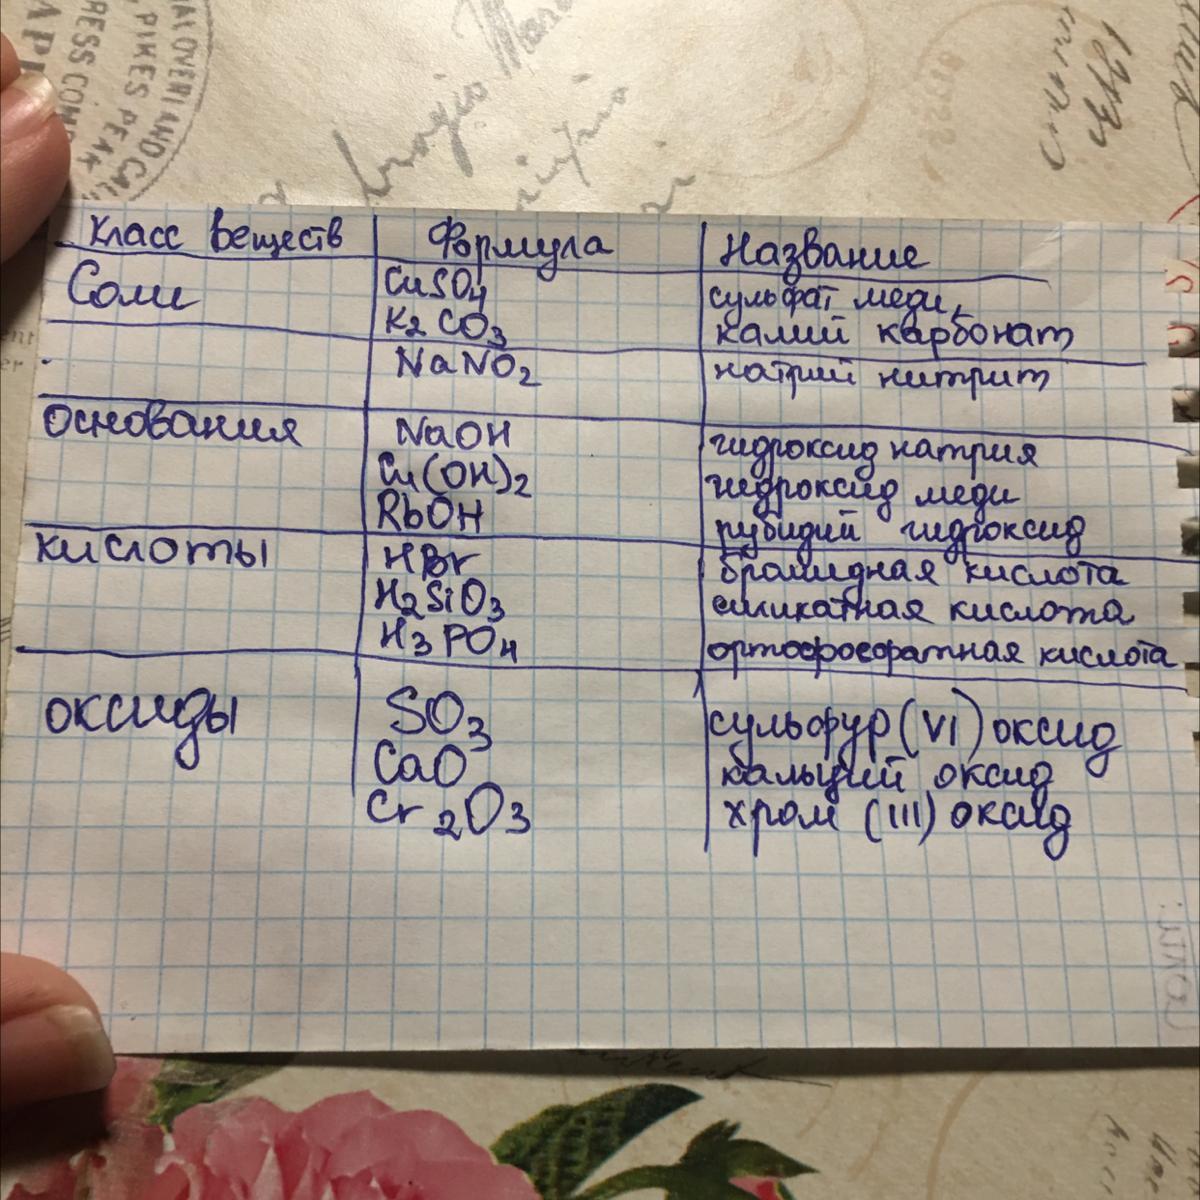 AL OVERLAND CAL
PIKES PEAK
RESS COM
класс веществ Формула Название
Соли CuSO4 сульфат меди,
K2CO3 калий карбонат
NaNO2 натрий нитрит
основания NaOH гидроксид натрия
Cu(OH)2 гидроксид меди
RbOH рубидий гидроксид
кислоты HBr бромидная кислота
H2SiO3 силикатная кислота
H3PO4 ортофосфатная кислота
оксиды SO3 сульфур (VI) оксид
CaO кальций оксид
Cr2O3 хром (III) оксид